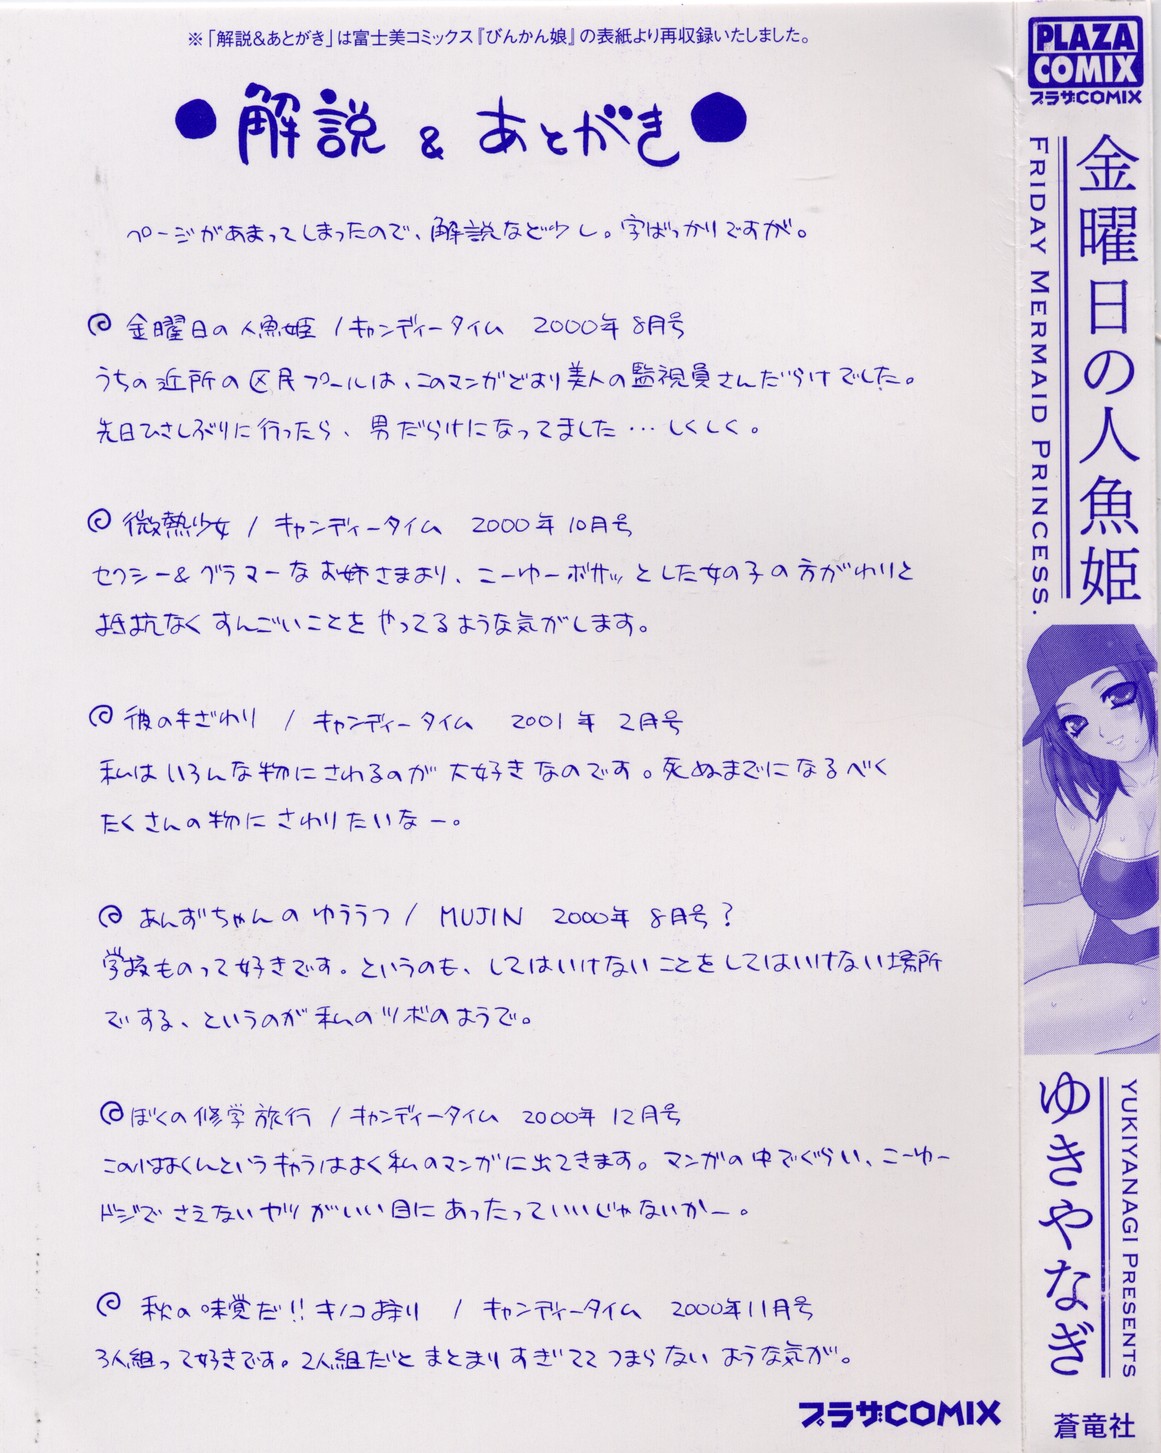 ※「解説&あとがき」は富士美コミックス『びんかん娘』の表紙より再収録いたしました。
●解説 & あとがき●
ページがあまってしまったので、解説など少し。字ばっかりですが。
金曜日の人魚姫 / キャンディータイム 2000年 8月号
うちの近所の区民プールは、このマンガどおり美人の監視員さんだらけでした。
先日ひさしぶりに行ったら、男だらけになってました…しくしく。
微熱少女 / キャンディータイム 2000年10月号
セクシー&グラマーなお姉さまより、こーゆーボサッとした女の子の方がわりと
抵抗なくすんごいことをやってるような気がします。
彼の手ざわり / キャンディータイム 2001年 2月号
私はいろんな物にさわるのが大好きなのです。死ぬまでになるべく
たくさんの物にさわりたいなー。
あんずちゃんのゆううつ / MUJIN 2000年 8月号?
学校ものって好きです。というのも、してはいけないことをしてはいけない場所
でする、というのが私のツボのようで。
ぼくの修学旅行 / キャンディータイム 2000年 12月号
このくんというキャラはよく私のマンガに出てきます。マンガの中でぐらい、こーゆー
ドジでさえないヤツがいい目にあったっていいじゃないかー。
秋の味覚だ!!キノコ狩り / キャンディータイム 2000年11月号
3人組って好きです。2人組だとまとまりすぎててつまらないような気が。
プラザCOMIX
PLAZA
COMIX
プラザCOMIX
金曜日の人魚姫
FRIDAY MERMAID PRINCESS.
ゆきやなぎ
YUKIYANAGI PRESENTS
蒼竜社